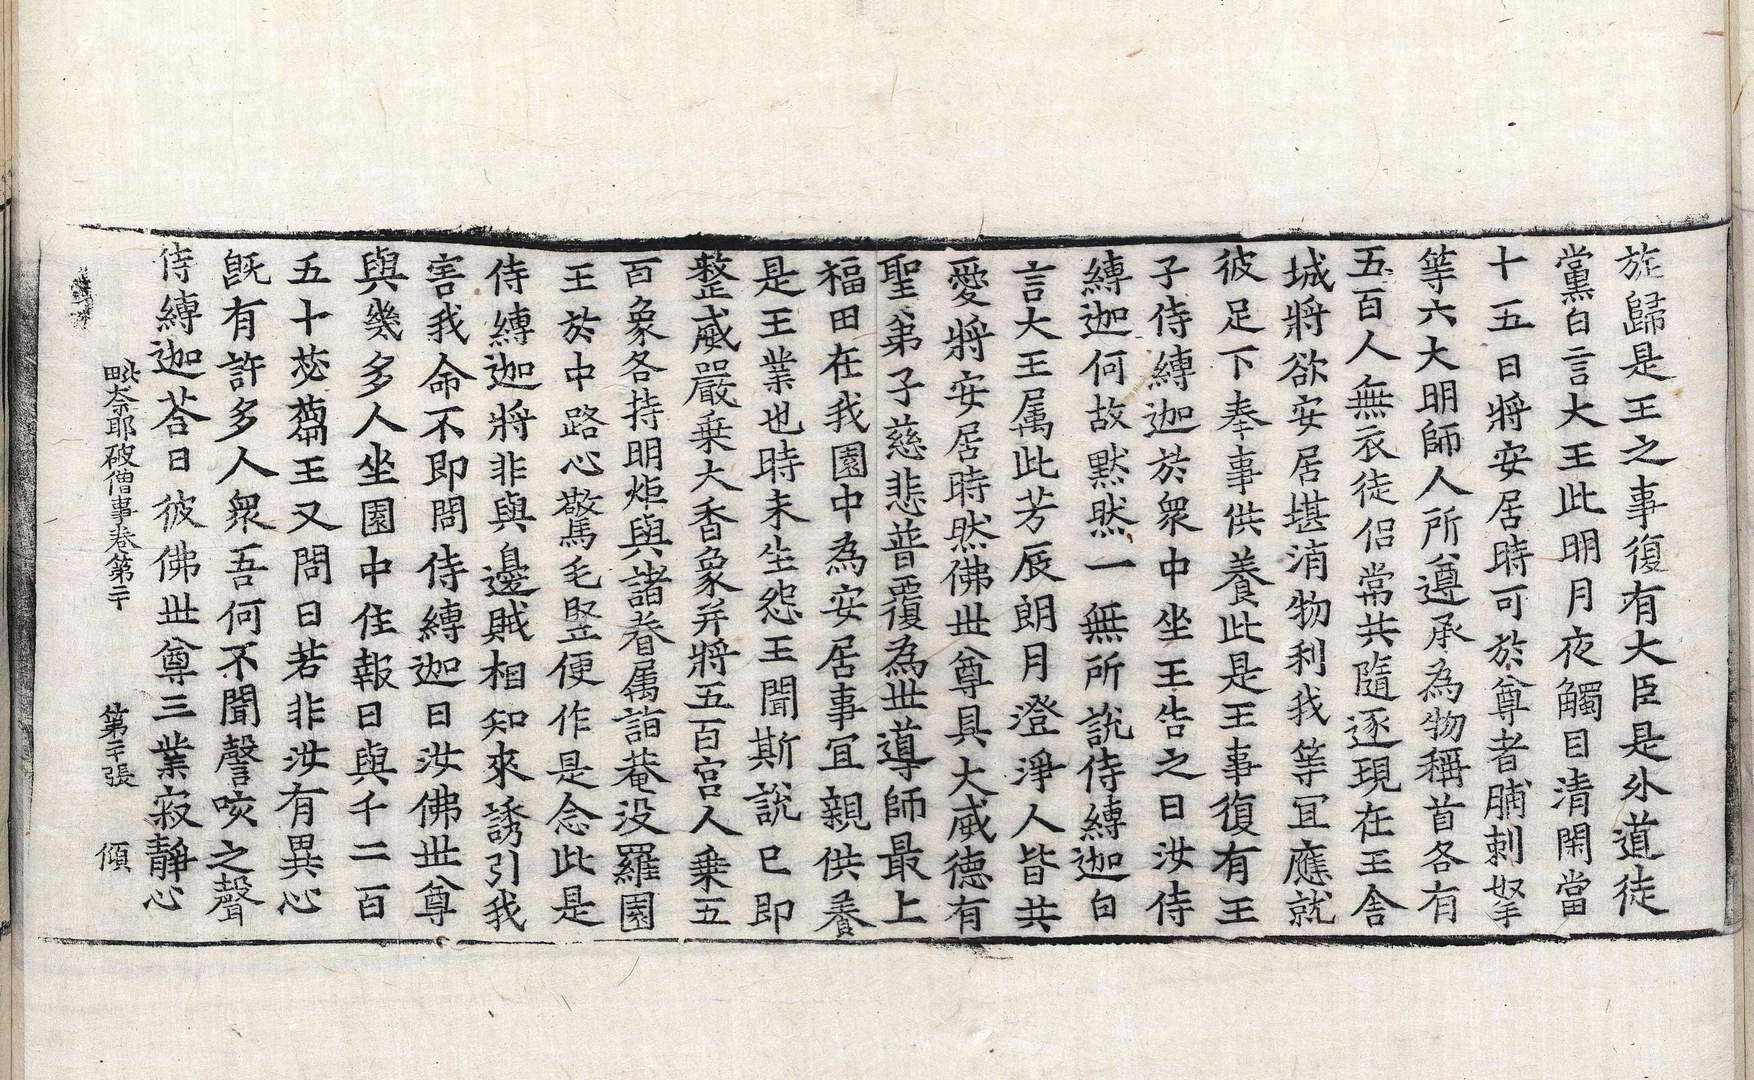 旋歸是王之事復有大臣是外道徒
黨白言大王此明月夜觸目清閑當
十五日將安居時可於尊者脯剌拏
等六大明師人所遵承為物稱首各有
五百人無衣徒侣常共隨逐現在王舎
城將欲安居堪消物利我等冝應就
彼足下奉事供養此是王事復有王
子侍縛迦於衆中坐王告之曰汝侍
縛迦何故黙然一無所說侍縛迦白
言大王属此芳辰朗月澄淨人皆共
愛將安居時然佛世尊具大威德有
聖弟子慈悲普覆為世導師最上
福田在我園中為安居事冝親供養
是王業也時未生怨王聞斯說已即
整威嚴乗大香象并將五百宫人乗五
百象各持明炬與諸眷属詣菴没羅園
王於中路心驚毛竪便作是念此是
侍縛迦將非與邊賊相知來誘引我
害我命不即問侍縛迦曰汝佛世尊
與幾多人坐園中住報曰與千二百
五十苾蒭王又問曰若非汝有異心
旣有許多人衆吾何不聞謦咳之聲
侍縛迦荅曰彼佛世尊三業寂靜心
毗奈耶破僧事卷第二十　第二十張　傾